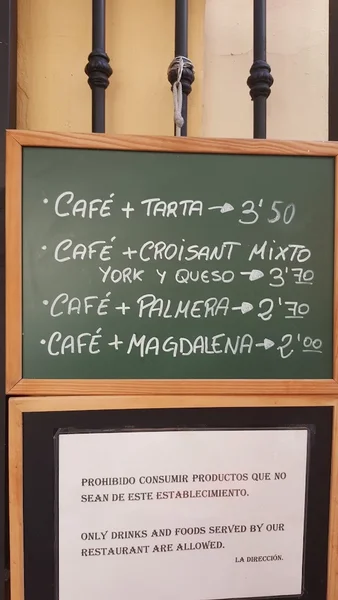 · CAFÉ + TARTA → 3'50
· CAFÉ + CROISANT MIXTO
YORK Y QUESO → 3'70
· CAFÉ + PALMERA → 2'70
· CAFÉ + MAGDALENA → 2'00
PROHIBIDO CONSUMIR PRODUCTOS QUE NO
SEAN DE ESTE ESTABLECIMIENTO.
ONLY DRINKS AND FOODS SERVED BY OUR
RESTAURANT ARE ALLOWED.
LA DIRECCIÓN.